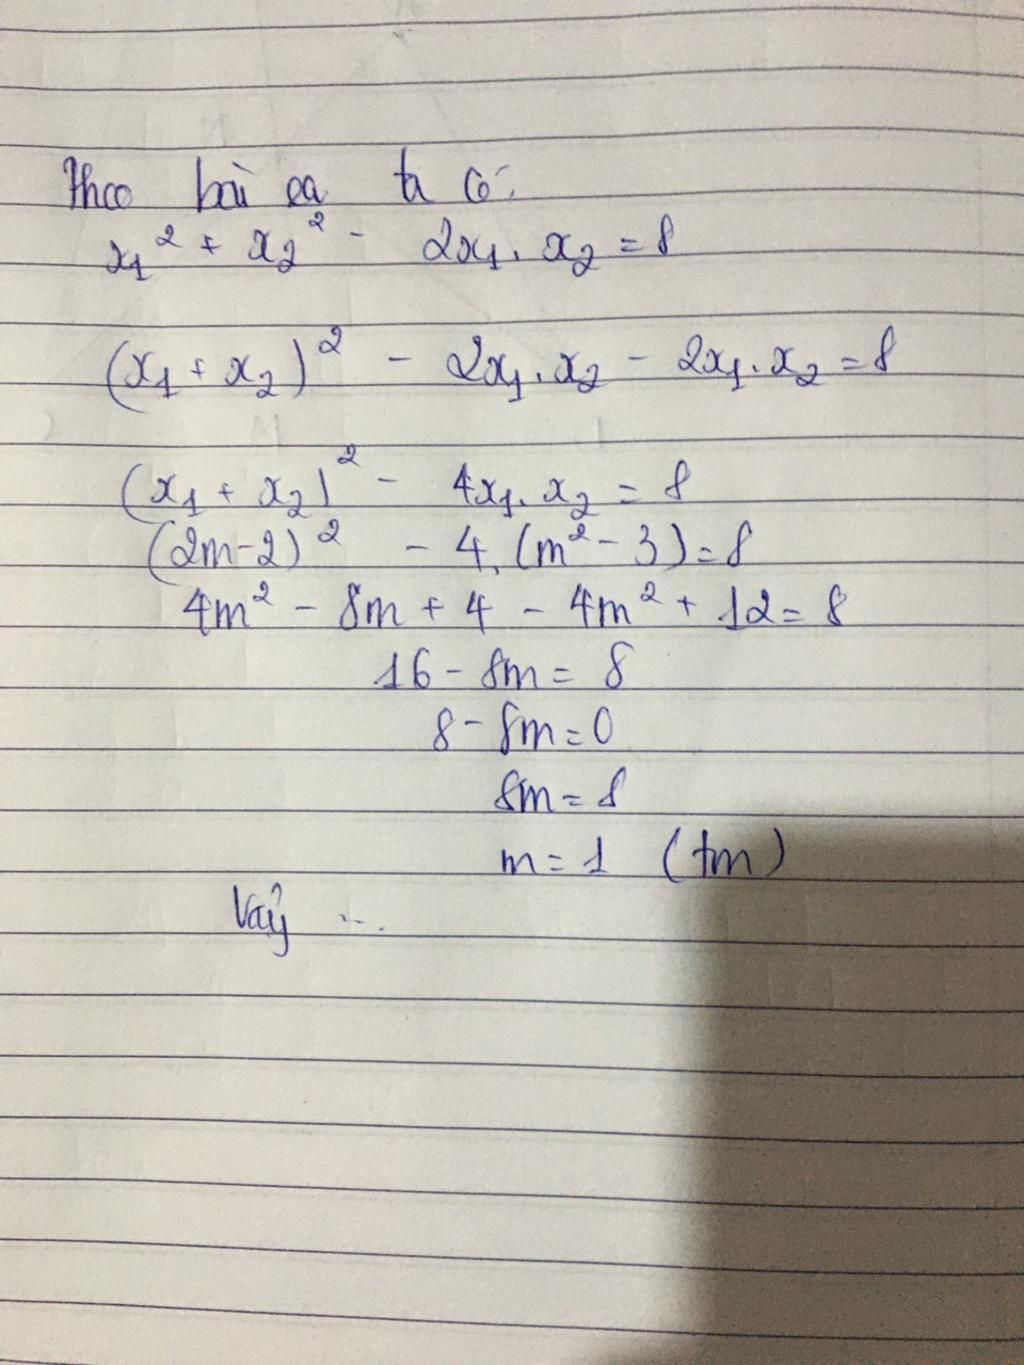 Theo bài ra ta có:
x₁² + x₂² - 2x₁.x₂ = 8
(x₁ + x₂)² - 2x₁.x₂ - 2x₁.x₂ = 8
(x₁ + x₂)² - 4x₁.x₂ = 8
(2m-2)² - 4.(m² - 3) = 8
4m² - 8m + 4 - 4m² + 12 = 8
16 - 8m = 8
8 - 8m = 0
8m = 8
m = 1 (tm)
Vậy ...